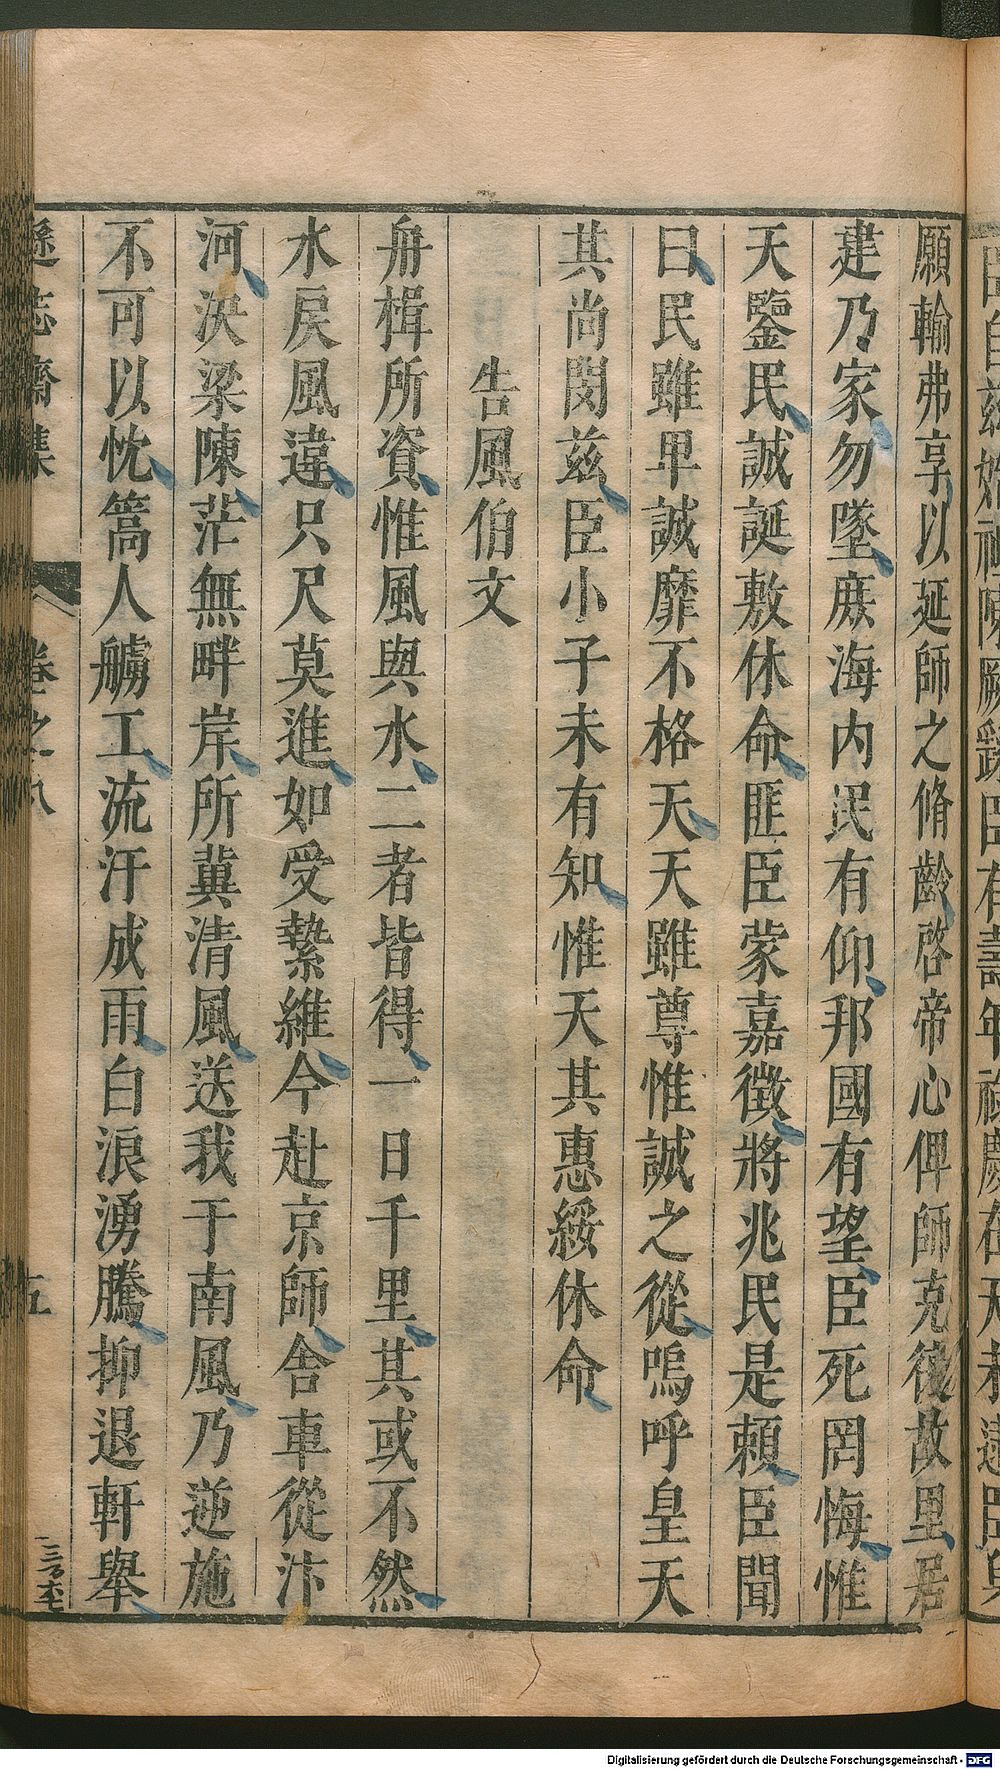 願輸弗享以延師之脩齡啓帝心俾師克復故里居
建乃家勿墜庶海内民有仰邦國有望臣死罔悔惟
天鑒民誠誕敷休命匪臣蒙嘉徵將兆民是賴臣聞
曰民雖卑誠靡不格天天雖尊惟誠之從嗚呼皇天
其尚閔兹臣小子未有知惟天其惠綏休命
告風伯文
舟楫所資惟風與水二者皆得一日千里其或不然
水戾風違只尺莫進如受縶維今赴京師舍車從汴
河決梁陳茫無畔岸所冀清風送我于南風乃逆施
不可以忱篙人艣工流汗成雨白浪湧騰抑退軒舉
遜志齋集
卷之八
五
Digitalisierung gefördert durch die Deutsche Forschungsgemeinschaft - DFG